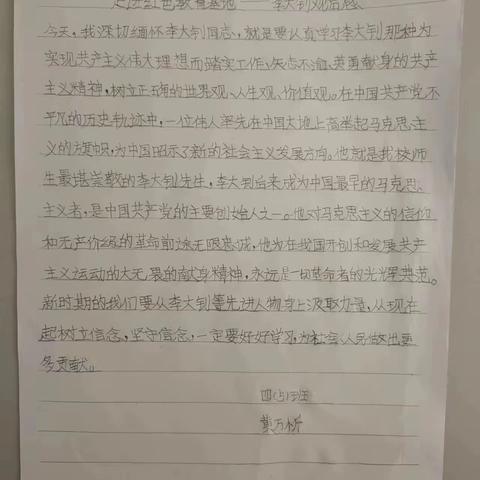 走进红色教育基地——李大钊观后感
今天,我深切缅怀李大钊同志,就是要认真学习李大钊那种为
实现共产主义伟大理想而踏实工作、矢志不渝、英勇献身的共产
主义精神,树立正确的世界观、人生观、价值观。在中国共产党不
平凡的历史轨迹中,一位伟人率先在中国大地上高举起马克思主
义的旗帜,为中国昭示了新的社会主义发展方向。他就是我校师
生最堪崇敬的李大钊先生,李大钊后来成为中国最早的马克思
主义者,是中国共产党的主要创始人之一。他对马克思主义的信仰
和无产价级的革命前途无限忠诚,他为在我国开创和发展共产
主义运动的大无畏的献身精神,永远是一切革命者的光辉典范。
新时期的我们要从李大钊等先进人物身上汲取力量,从现在
起树立信念,坚守信念,一定要好好学习,为社会、人民做出更
多贡献。
四(5)班
黄万析